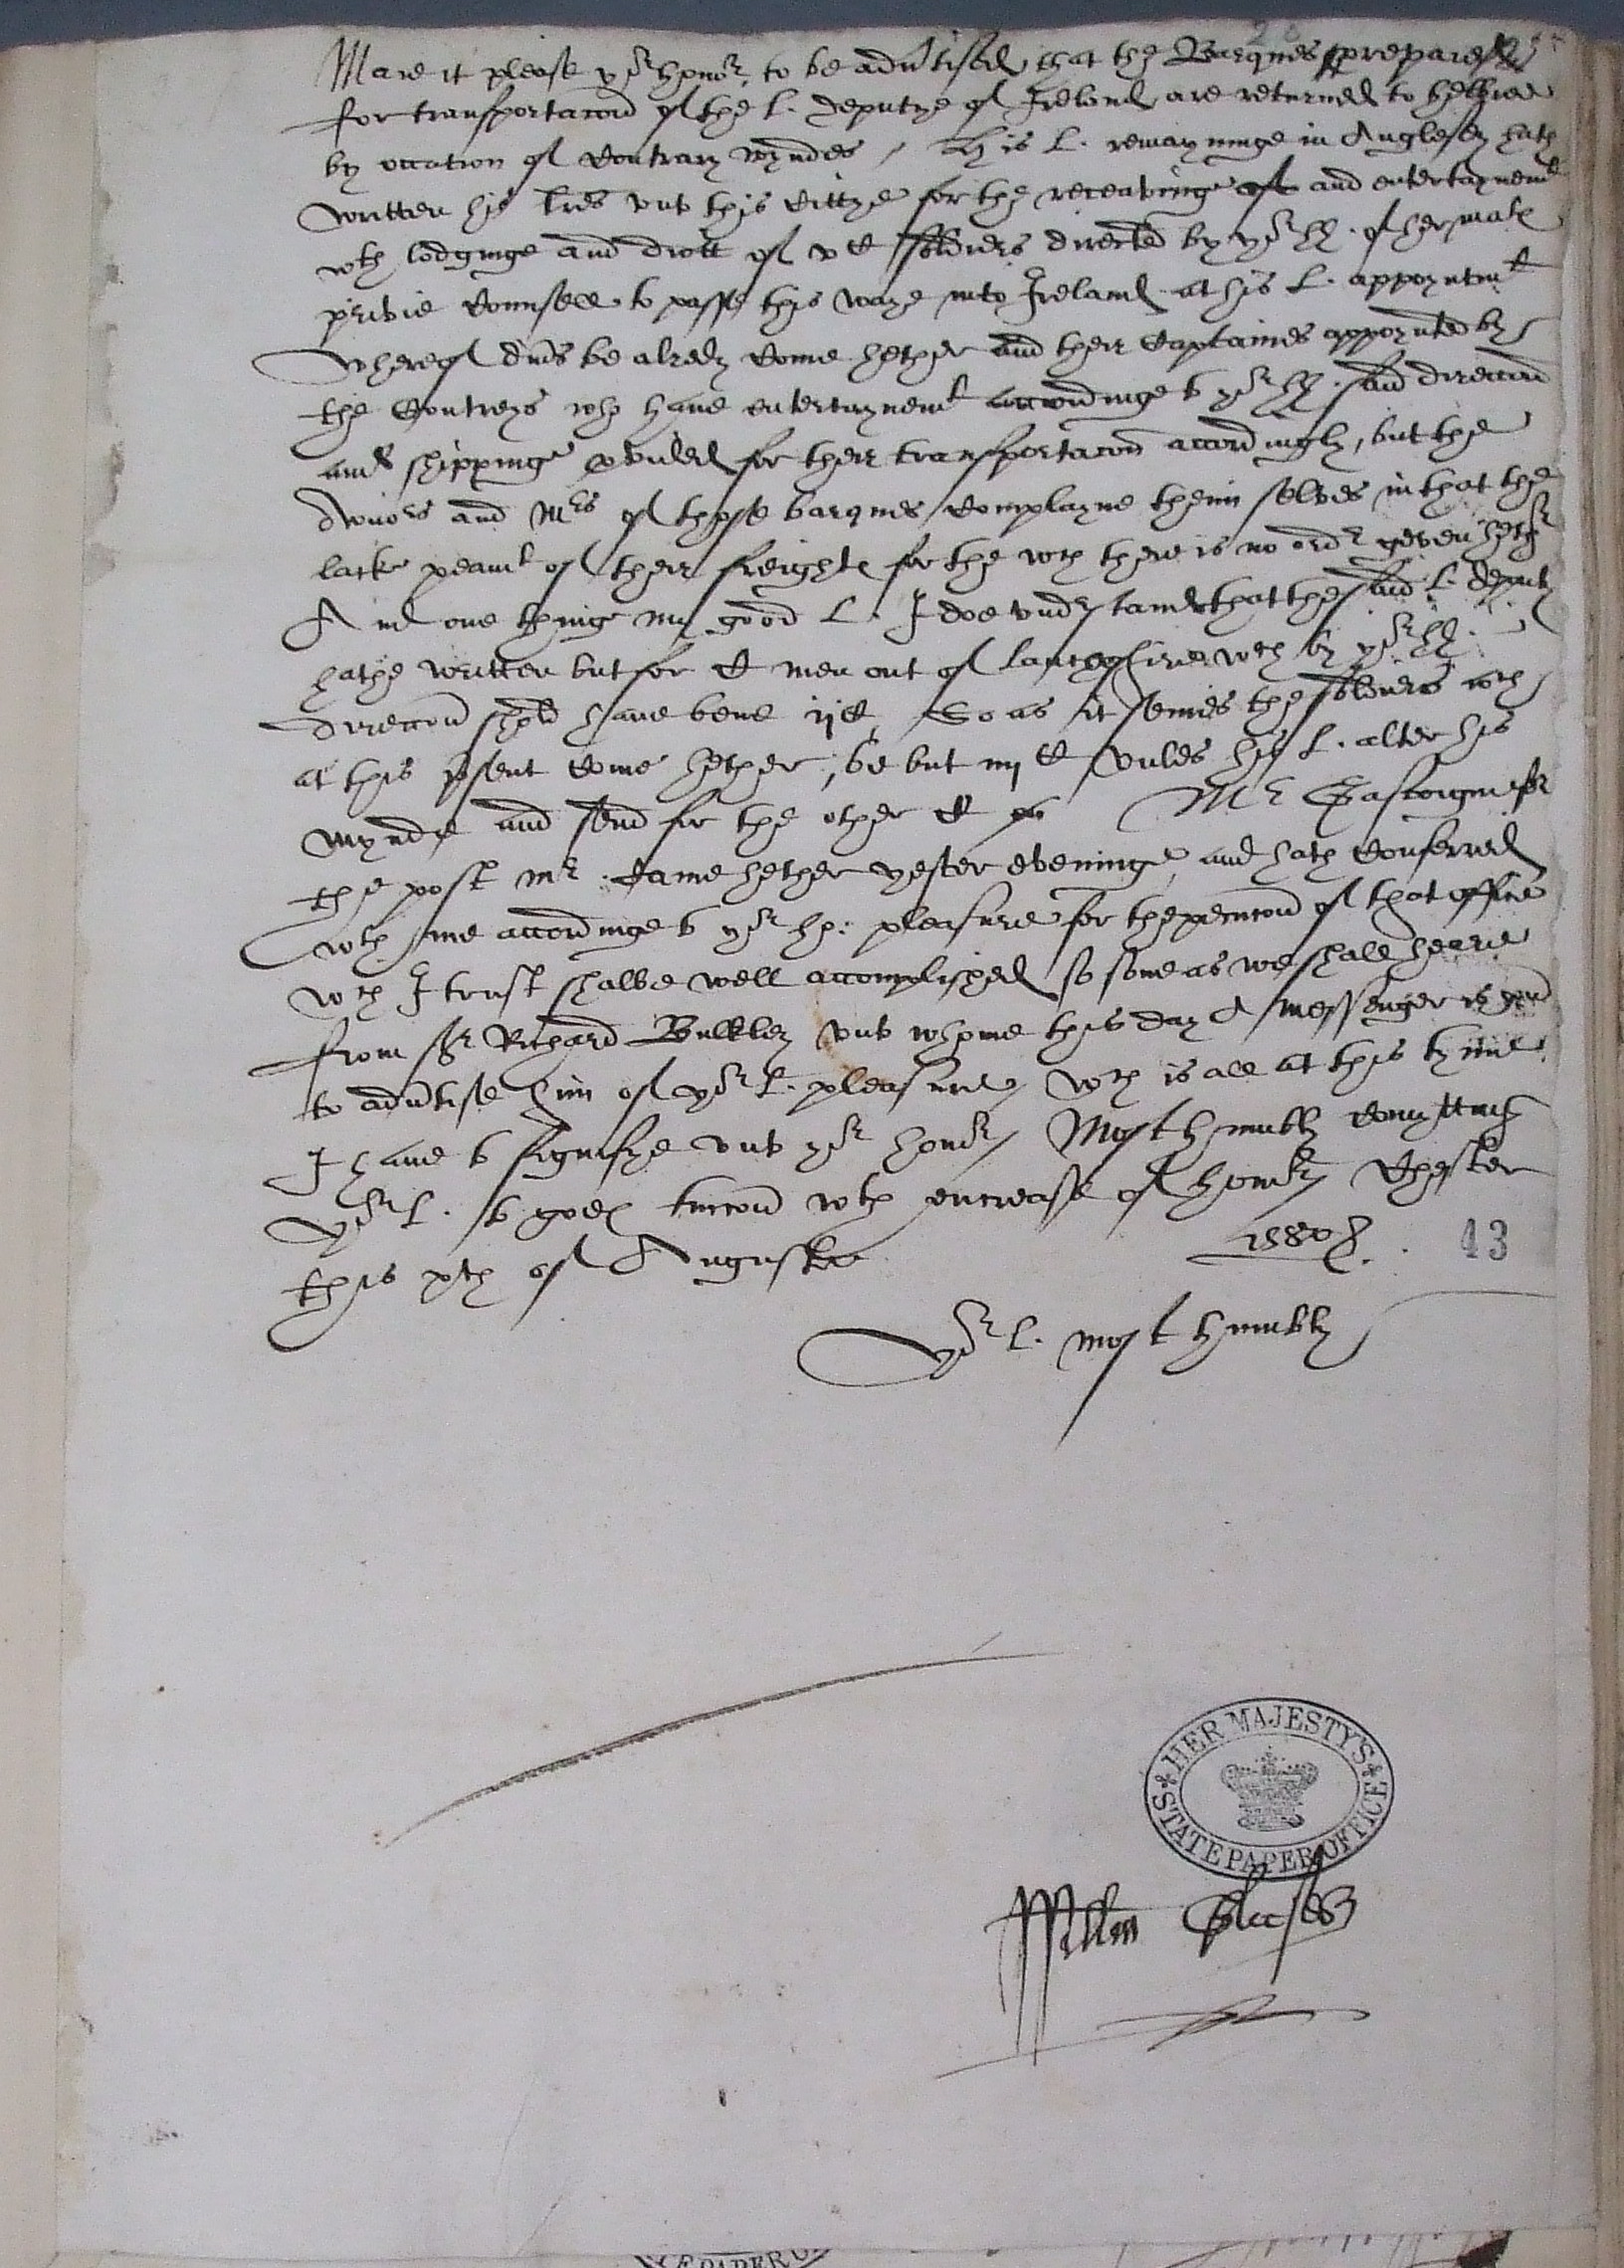 Maie it please yor honor, to be advtised that the Barques prepared
for transportacon of the L. deputye of Ireland are returned to hellbree
by occation of contrary wyndes / His L. remayninge in Anglesey hath
written his lres unto this Cittye for the receavinge of and entertaynemt
wth lodginge and diett of vC soldiers directed by yor hh. of her mats
privie Counsell to passe this waye into Ireland at his L. appoyntmt
whereof divs be alredy come hether and their Captaines appoynted by
the Contreys who have entertaynemt accordinge to yor hh. said direccon
and shippinge pvided for their transportacon accordingly, but the
Owners and Mrs of those barques complayne theim selves in that the
lacke peamt of their freights for the wch there is no ordr geven hethr
And one thinge my good L. I doe understand that the said L. deputy
hathe written but for C men out of lancashire wch by yor hh.
direccon shold have bene ijC, So as it semes the soldiers wch
at this psent come hether, be but iiij C unles his L. alter his
mynde and send for the other C Mr Gascoigne for
the post mr. came hether yester evening, and hath conferred
wth me accordinge to yor ho: pleasure for the execucon of that office
wch I trust shalbe well accomplished so sone as we shall heare
from Sr Richard Bulkley unto whome this day A messenger is send
to advtise him of yor L. pleasure, Wch is all at this tyme
I have to signifye unto yor honor / Most humbly comyttinge
yor L. to gods tuicon wth encrease of honor / Chester
this xth of Auguste 1580 /.
43
yor L. most humbly
HER MAJESTY'S STATE PAPER OFFICE